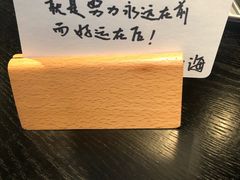 就是努力永远在前
而好运在后！
海